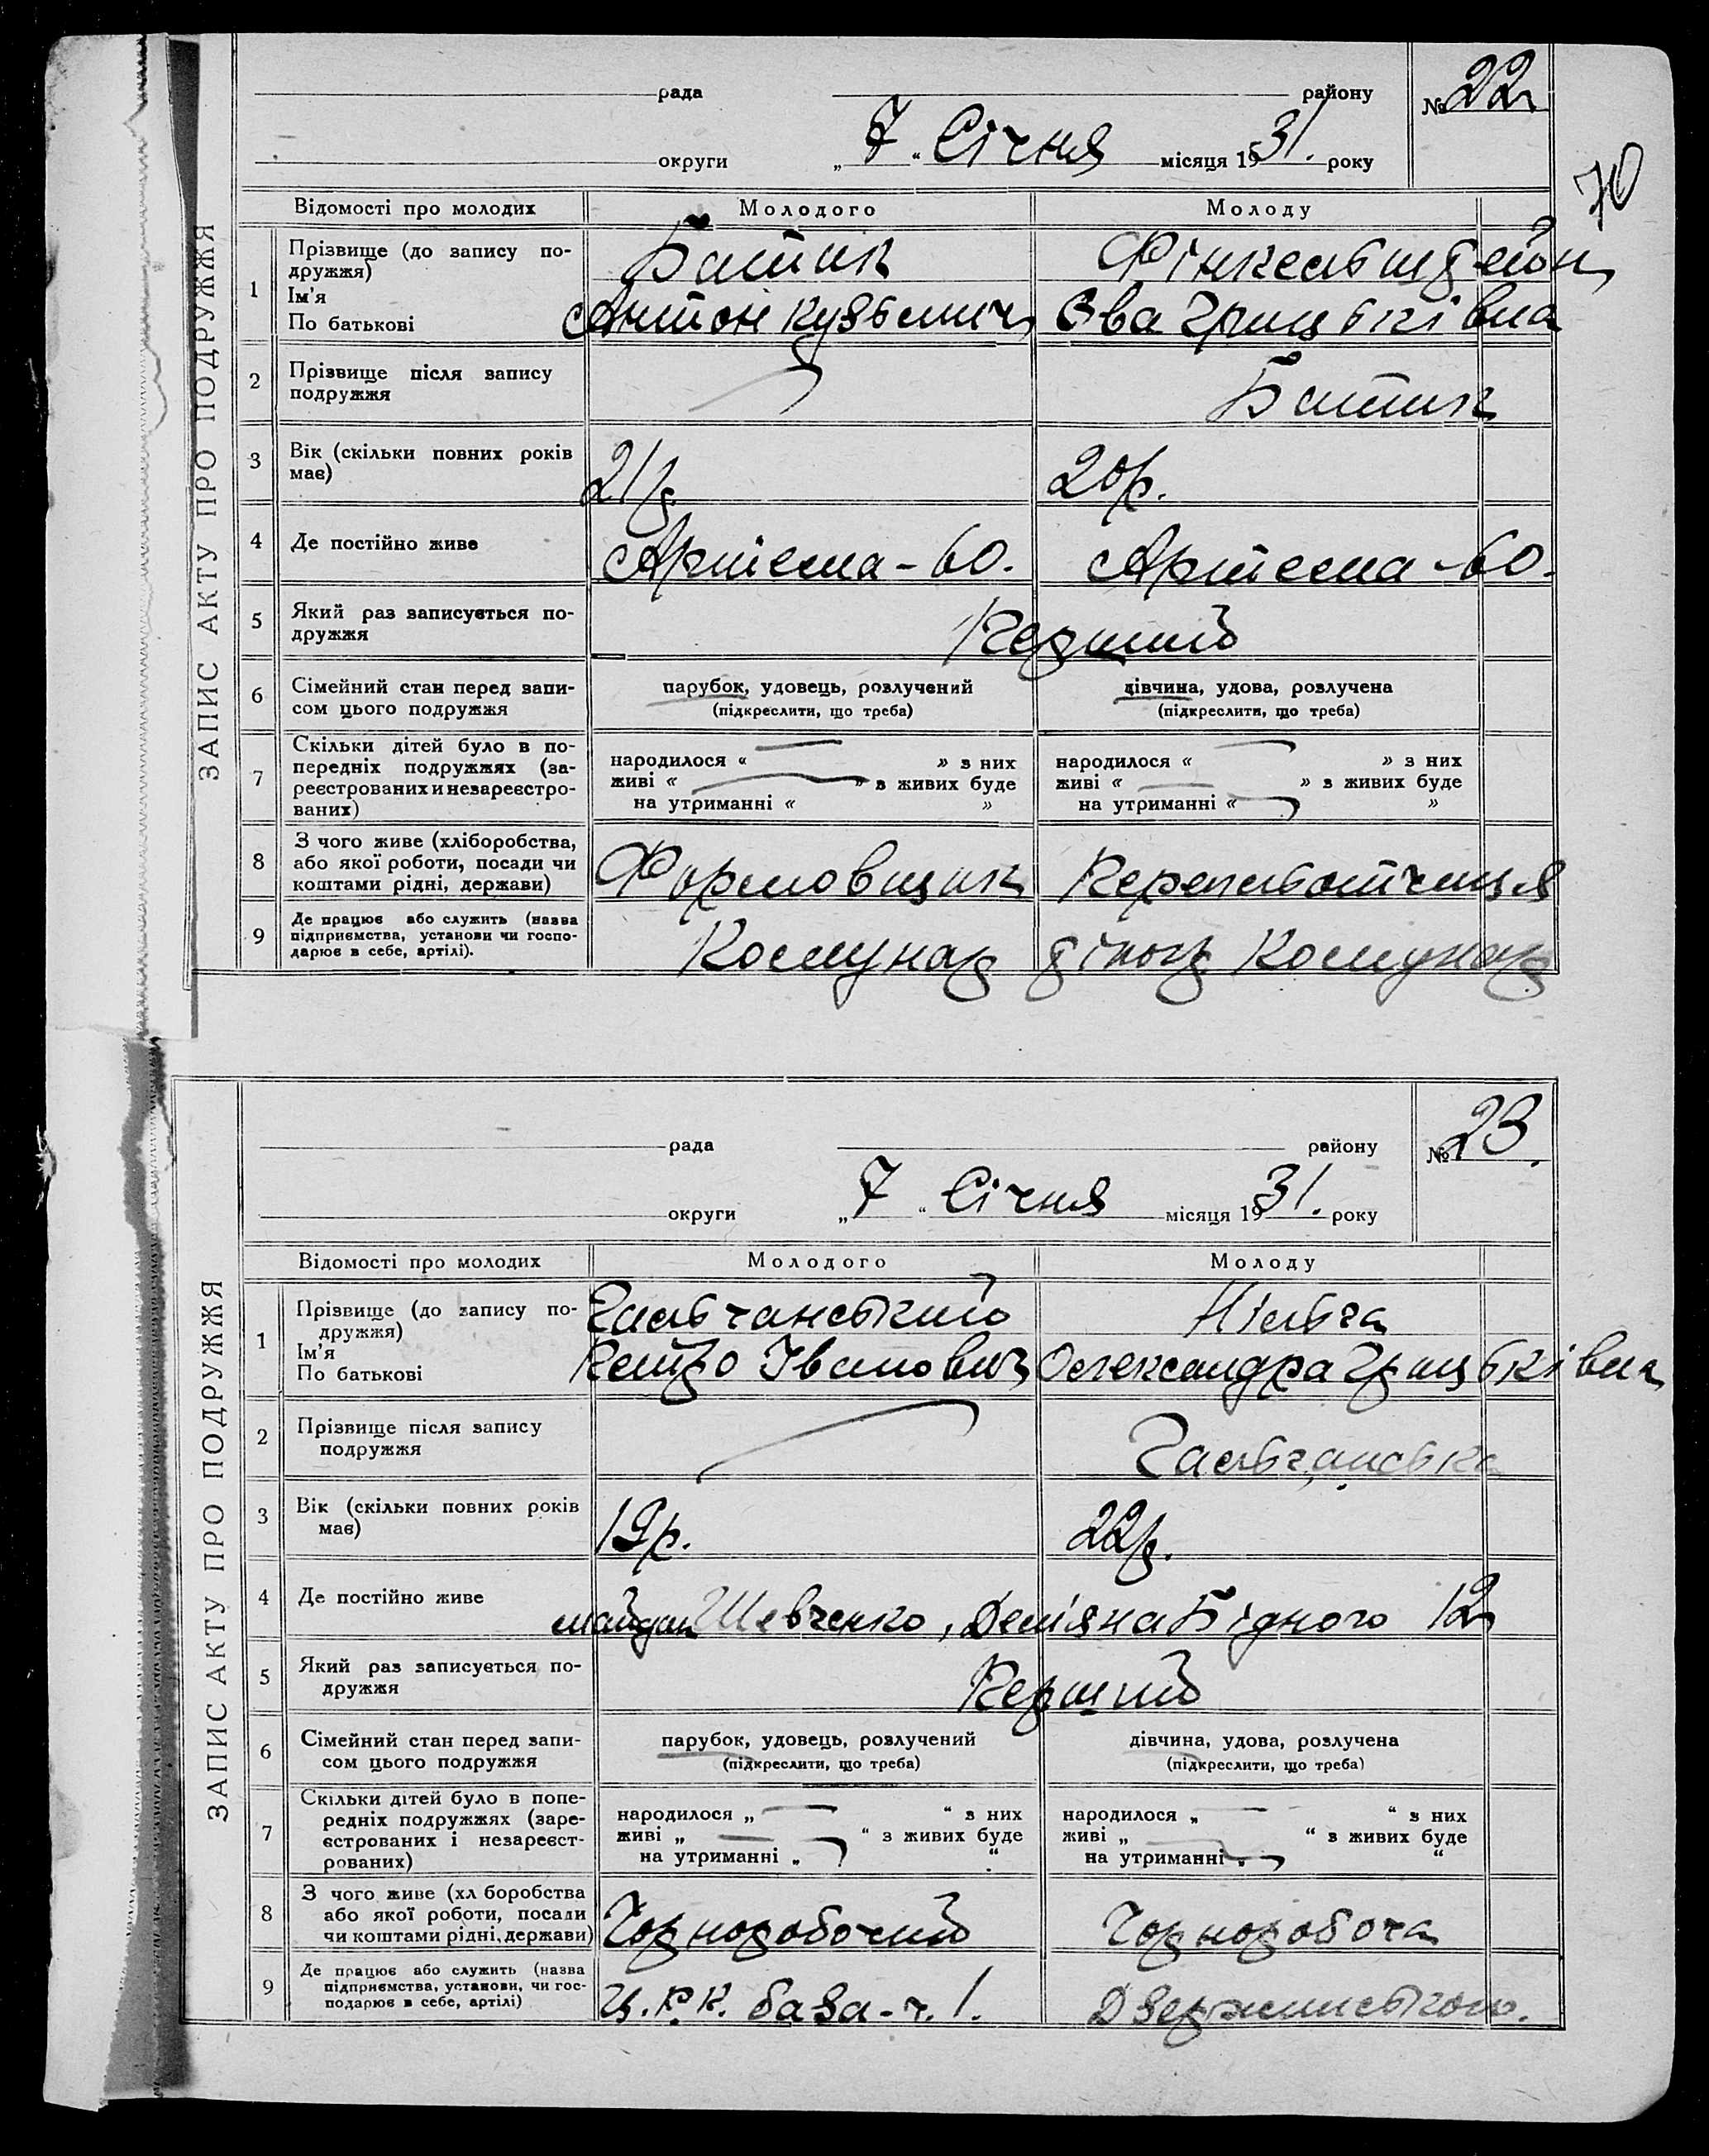 рада района №22
округи „7“ Січня місяця 1931. року
70
ЗАПИС АКТУ ПРО ПОДРУЖЖЯ
Відомості про молодих Молодого Молоду
1 Прізвище (до запису по-
дружжя) Батик Фінкельштейн
Ім’я
По батькові Антон Кузьмич Ева Грицьківна
2 Прізвище після запису
подружжя Батик
3 Вік (скільки повних років
має) 21 р. 20 р.
4 Де постійно живе Артема - 60. Артема - 60.
5 Який раз записується по-
дружжя Перший
6 Сімейний стан перед запи-
сом цього подружжя парубок, удовець, розлучений дівчина, удова, розлучена
(підкреслити, що треба) (підкреслити, що треба)
7 Скільки дітей було в по-
передніх подружжях (за-
реєстрованих и незареєстро-
ваних)
народилося « » з них народилося « » з них
живі « » з живих буде живі « » з живих буде
на утриманні « » на утриманні « »
8 З чого живе (хліборобства,
або якої роботи, посади чи
коштами рідні, держави) Формовщик
9 Де працює або служить (назва
підприємства, установи чи госпо-
дарює в себе, артілі). Комунар Комунар
рада району №23.
округи „7“ Січня місяця 1931. року
ЗАПИС АКТУ ПРО ПОДРУЖЖЯ
Відомості про молодих Молодого Молоду
1 Прізвище (до запису по-
дружжя) Гальчанський Нільга
Ім’я
По батькові Петро Іванович Олександра Грицьківна
2 Прізвище після запису
подружжя Гальчанська
3 Вік (скільки повних років
має) 19 р. 22 р.
4 Де постійно живе майдан Шевченко, Дем'яна Бідного 12
5 Який раз записується по-
дружжя Перший
6 Сімейний стан перед запи-
сом цього подружжя парубок, удовець, розлучений дівчина, удова, розлучена
(підкреслити, що треба) (підкреслити, що треба)
7 Скільки дітей було в попе-
редніх подружжях (заре-
єстрованих і незареєст-
рованих)
народилося „ “ з них народилося „ “ з них
живі „ “ з живих буде живі „ “ з живих буде
на утриманні „ “ на утриманні „ “
8 З чого живе (хл боробства
або якої роботи, посади
чи коштами рідні, держави) Чорноробочий Чорноробоча
9 Де працює або служить (назва
підприємства, установи, чи гос-
подарює в себе, артілі) Ц.Р.К. база - ч. 1. Дзержинського.